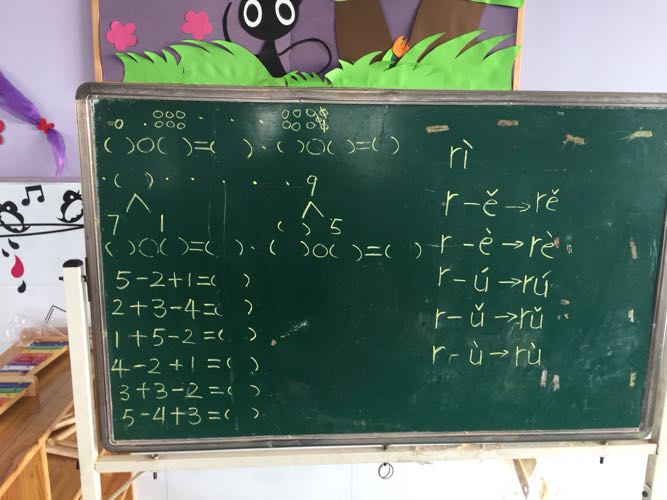 ( )○( )=( ) · ( )○( )=( )
( )    9
7 1    ( ) 5
( )○( )=( ) · ( )○( )=( )
5-2+1=( )
2+3-4=( )
1+5-2=( )
4-2+1=( )
3+3-2=( )
5-4+3=( )
rì
r-ě→rě
r-è→rè
r-ú→rú
r-ǔ→rǔ
r-ù→rù